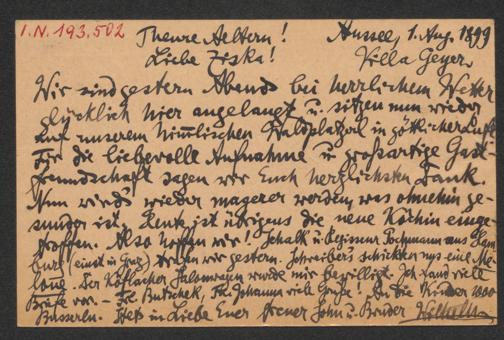 I.N. 193.502
Theure Aeltern! Aussee, 1. Aug. 1899
Liebe Ziska! Villa Geyer
Wir sind gestern Abends bei herrlichem Wetter
glücklich hier angelangt u. sitzen nun wieder
auf unserem himmlischen Waldplatzerl in göttlicher Luft
Für die liebevolle Aufnahme u. großartige Gast-
freundschaft sagen wir Euch herzlichsten Dank.
Nun wirds wieder magerer werden, was ohnehin ge-
sunder ist. Heut ist übrigens die neue Köchin einge-
troffen. Also hoffen wir! Schalk u. Regisseur aus Ham
burg (einst in Graz) wir gestern. Schreibers schickten uns eine Me-
lone. Der wurde mir bewilligt. Ich fand viele
Briefe vor. – Frl. Frl. Johanna viele Grüße! An die Kinder 1000
Busserln. Stets in Liebe Euer treuer Sohn u. Bruder Wilhelm